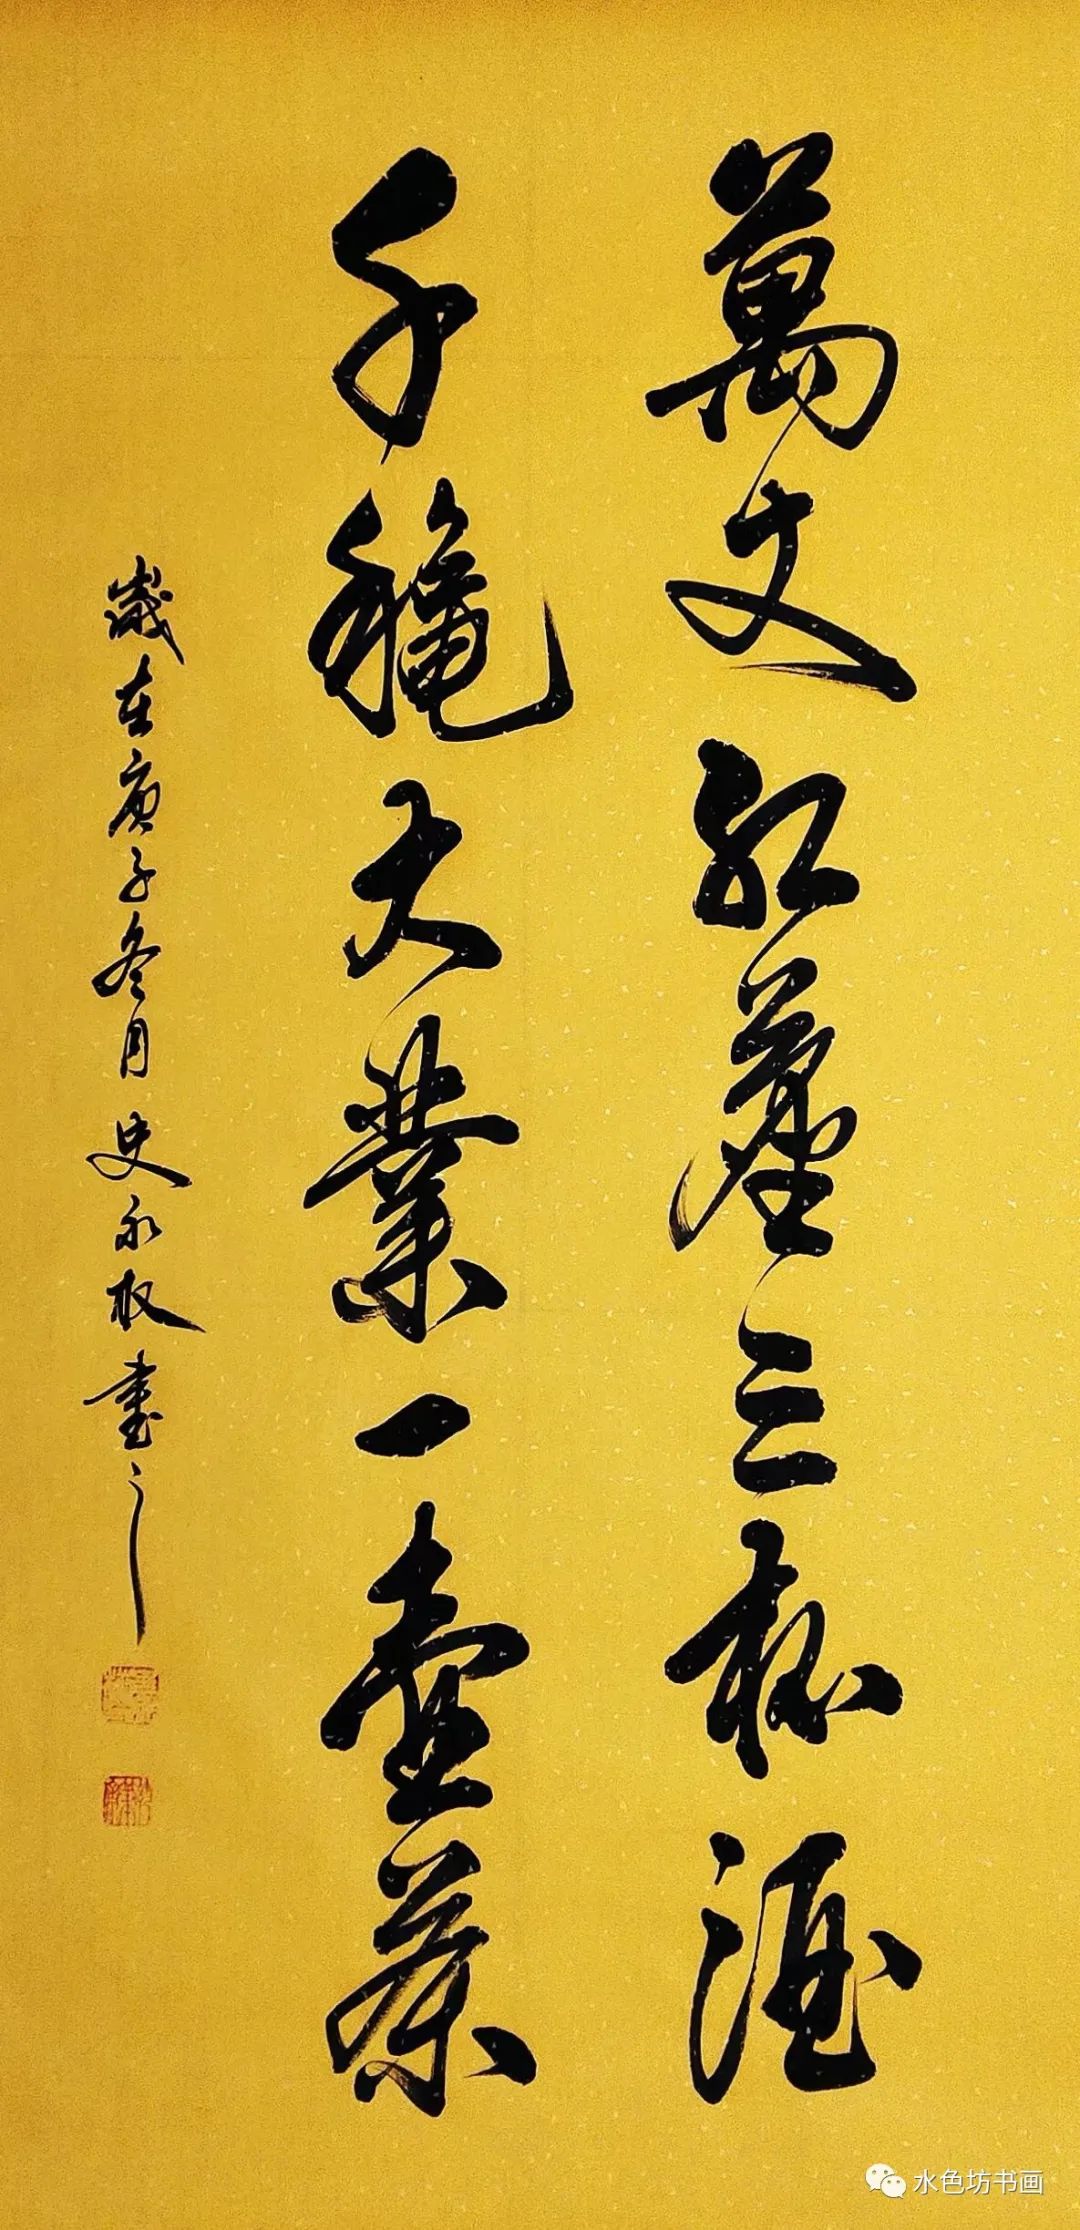 萬丈紅塵三杯酒
千龝大業一壺茶
歲在庚子冬月史永权書之
水色坊书画